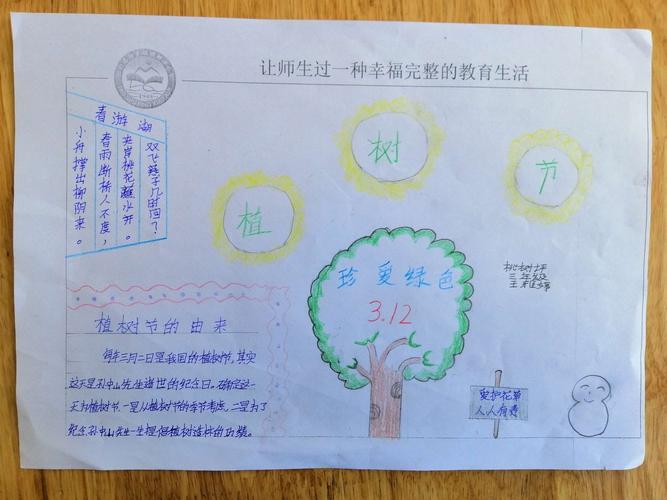 让师生过一种幸福完整的教育生活
春游湖
双飞燕子几时回？
夹岸桃花蘸水开。
春雨断桥人不度，
小舟撑出柳阴来。
植树节
珍爱绿色
3.12
桃树坪
三年级
王
植树节的由来
每年三月二日是我国的植树节，其实
这天是孙中山先生逝世的纪念日。确定这一
天为植树节，一是从植树节的季节考虑，二是为了
纪念孙中山先生一生提倡植树造林的功绩。
爱护花草
人人有责